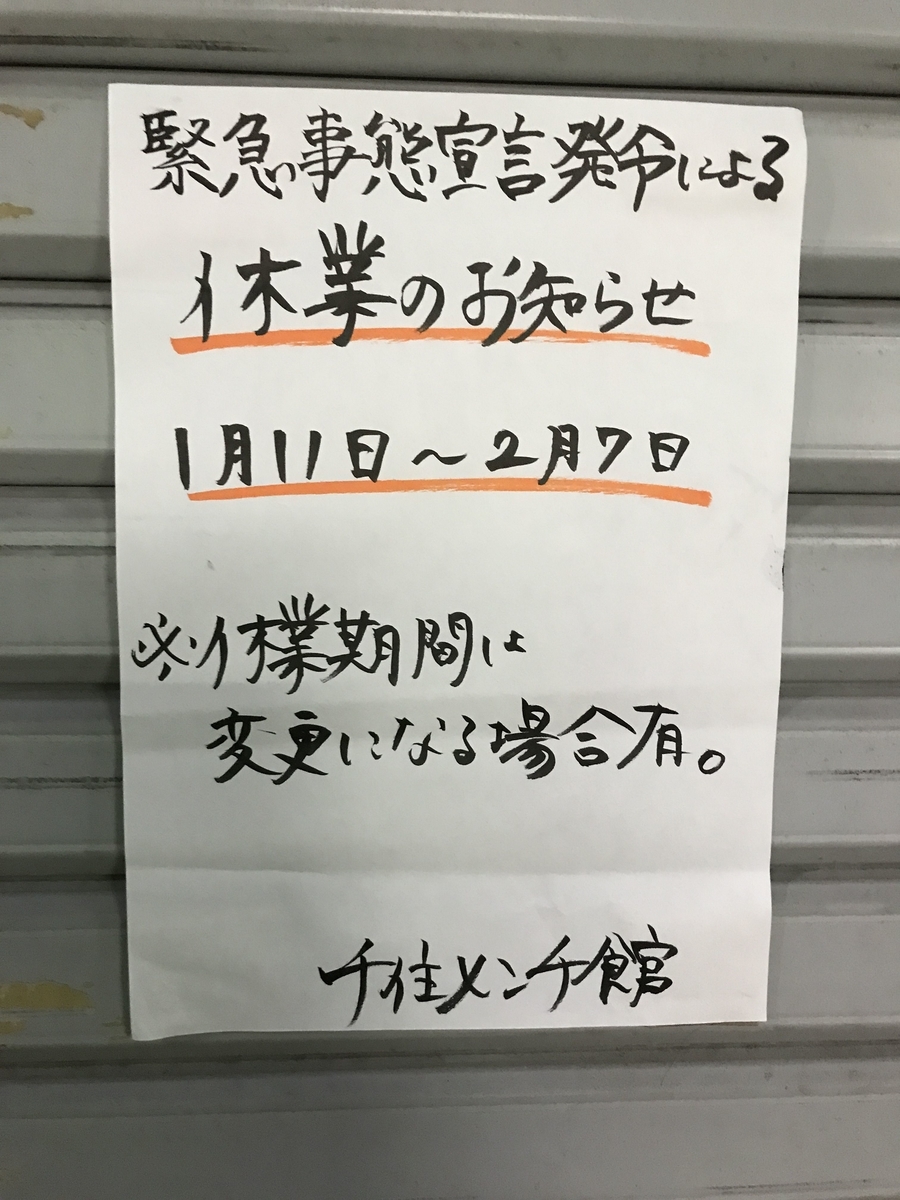 緊急事態宣言発令による
休業のお知らせ
1月11日～2月7日
※休業期間は
変更になる場合有。
千住メンチ館